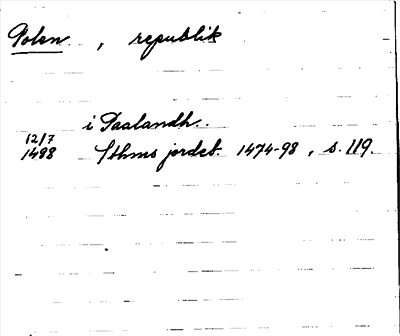 Polen , republik
i Paalandh.
12/7
1488 Sthms jordeb. 1474-98 , s. 119.